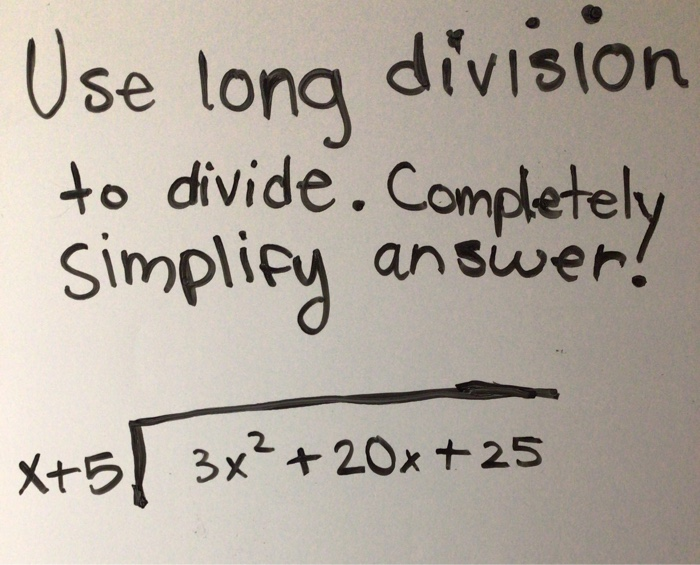 Use long division
to divide. Completely
Simplify answer!
x+5 3x² + 20x + 25